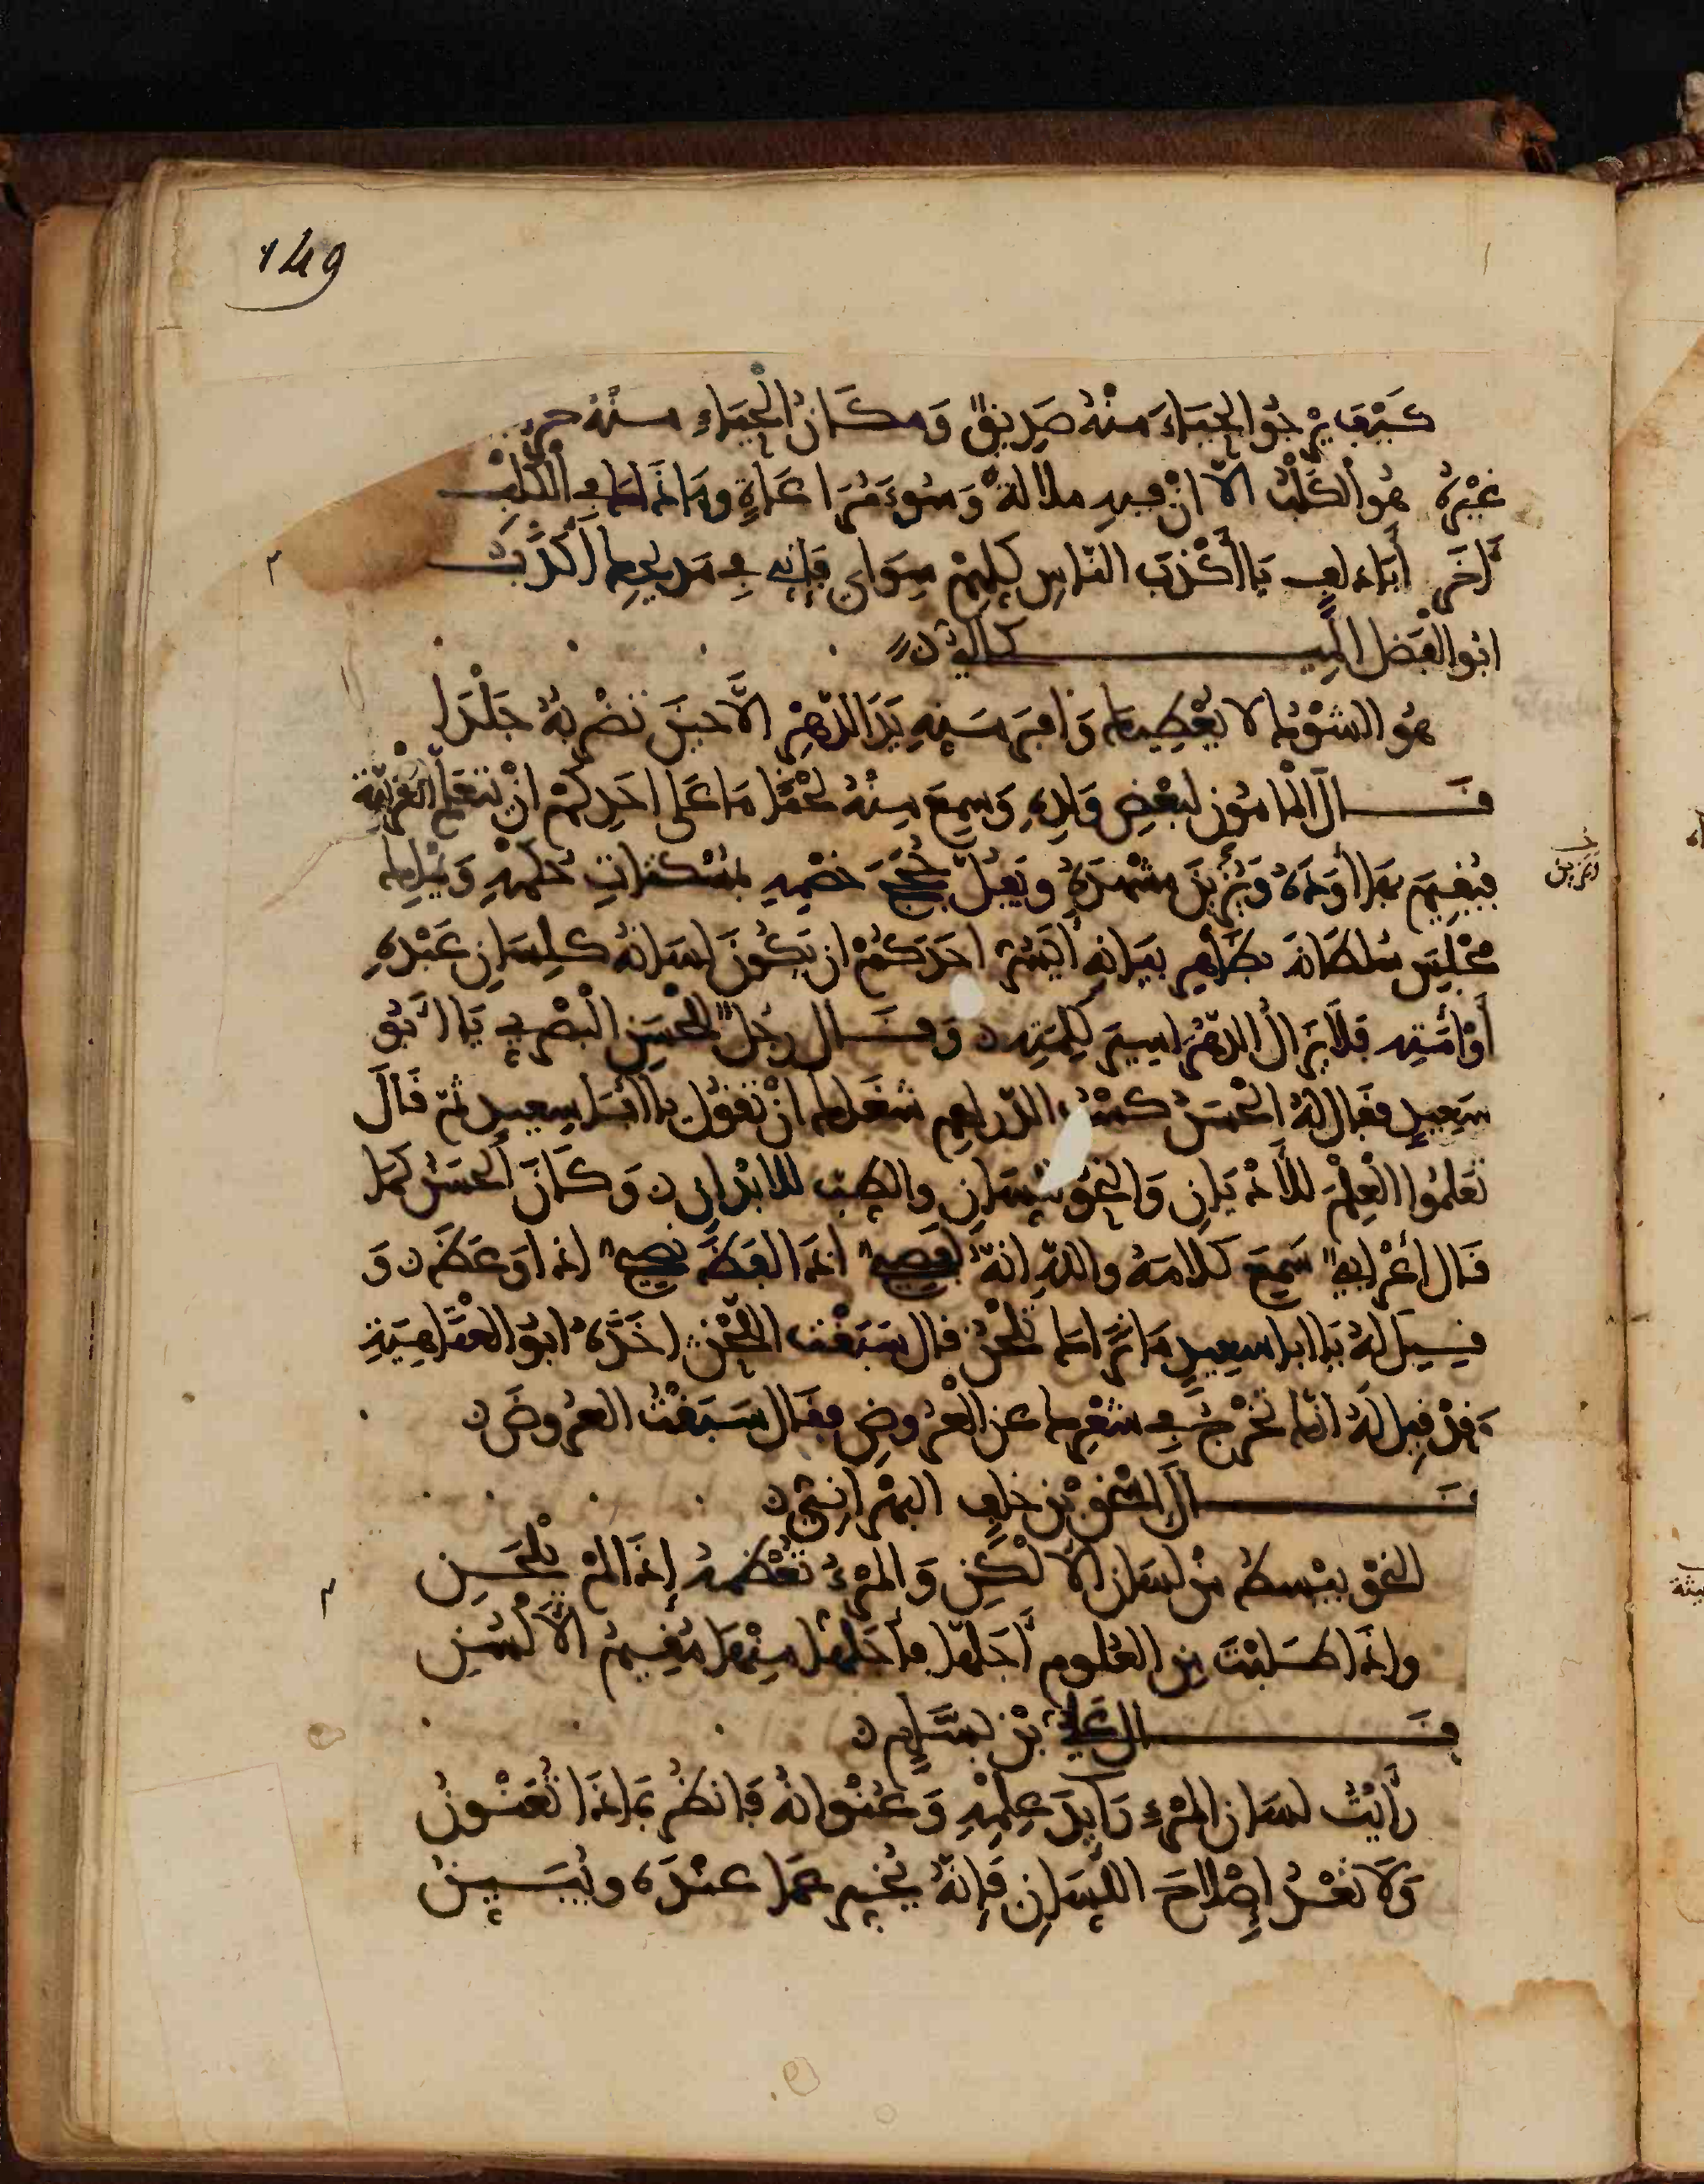 149
كَيْفَ يَرْجُوا الحَيَاءَ مِنْهُ صَدِيقٌ وَمَكَانُ الْحَيَاءِ مِنْهُ
غَيْرُهُ هُوَ الكَلْبُ الّا انّ فيهِ ملالةً وَسُوءَ مُرَاعَاةٍ وما ذَاكَ في الكَلْبِ
آخَر أيَا يَا أَكْذَبَ النّاسِ كلِّهِمْ سِوَايَ فإنّي فِي مَدِيحِكَ أَكْذَبُ
ابُو الفَضْل الْمِيكَالِيُّ
هُوَ الشّوْمُ لا يُعْطِي وَافِي سَيْبِهِ يَدَ الدّهْرِ الاّ حينَ تَضْرِبُهُ جَلْدَا
قَالَ المَامُونُ لِبَعْضِ وَلَدِهِ وَسَمِعَ مِنْهُ لَحْنًا مَا عَلَى احَدِكُمْ انْ يَتَعَلّمَ العَرَبِيّةَ
فيُقيمَ بهَا أَوَدَهُ وَيُزَيِّنَ مَشْهَدَهُ ويَفُلّ حُجَجَ خَصْمِهِ بِمُسْكِتَاتِ حُكْمِهِ وَيَمْلِكَ
مَجْلِسَ سُلْطَانِهِ بظَاهِرِ بَيَانِهِ أَيَسُرُّ احَدَكُمْ ان يَكُونَ لسَانُهُ كَلِسَانِ عَبْدِهِ
أَوْ أَمَتِهِ فَلاَ يَزَالُ الدّهْرَ اسِيرَ كَلِمَتِهِ وَقَالَ رجُلٌ لِلْحَسَنِ الْبَصْرِيِّ يَا أَبُو
سَعِيدٍ فقَالَ لَهُ الحَسَنُ كَسْبُ الدّرَاهِمِ شَغَلَكَ انْ تَقُولَ يا ابَا سعِيدٍ ثمّ قَالَ
تَعَلّمُوا العِلْمَ للأَدْيَانِ وَالنّحْوَ للّسَانِ والطِّبّ للابْدَانِ وَكَانَ الحَسَنُ كَمَا
قَالَ اعْرَابِيٌّ سَمِعَ كَلامَهُ واللهِ انّهُ لفَصِيحٌ اذَا لفَظَ نَصِيحٌ اذا وَعَظَ وَ
قِيلَ لَهُ يَا ابا سعِيدٍ مَا نَرَاكَ تَلْحَنُ قالَ سَبَقْتُ اللّحْنَ اخَذَهُ ابُو العَتَاهِيَةِ
وَقَدْ قيلَ لَهُ انّكَ تَخْرُجُ فِي شِعْرِكَ عنِ العَرُوضِ فقَالَ سَبَقْتُ العَرُوضَ
قَالَ اسْحَقُ بْنُ خَلَفٍ البَهْرَانِيُّ
النّحْوُ يَبْسطُ مِنْ لسَانِ الأَلْكَنِ وَالمَرْءُ تُعْظِمُهُ إِذَا لَمْ يَلْحَنِ
واذَا طَلَبْتَ مِنَ العُلُومِ أَجَلّهَا فأَجَلّهَا مِنْهَا مُقِيمُ الأَلْسُنِ
قَالَ عَلِيُّ بْنُ بَسَّامٍ
رَأَيْتُ لسَانَ المَرْءِ رَايِدَ عِلْمِهِ وَعُنْوَانُهُ فَانظُرْ بمَاذَا تُعَنْوِنُ
وَلاَ تَعْدُ إصْلاَحَ اللّسَانِ فَإِنّهُ يُخَبِّرُ عَمَّا عِنْدَهُ ويُبَيِّنُ